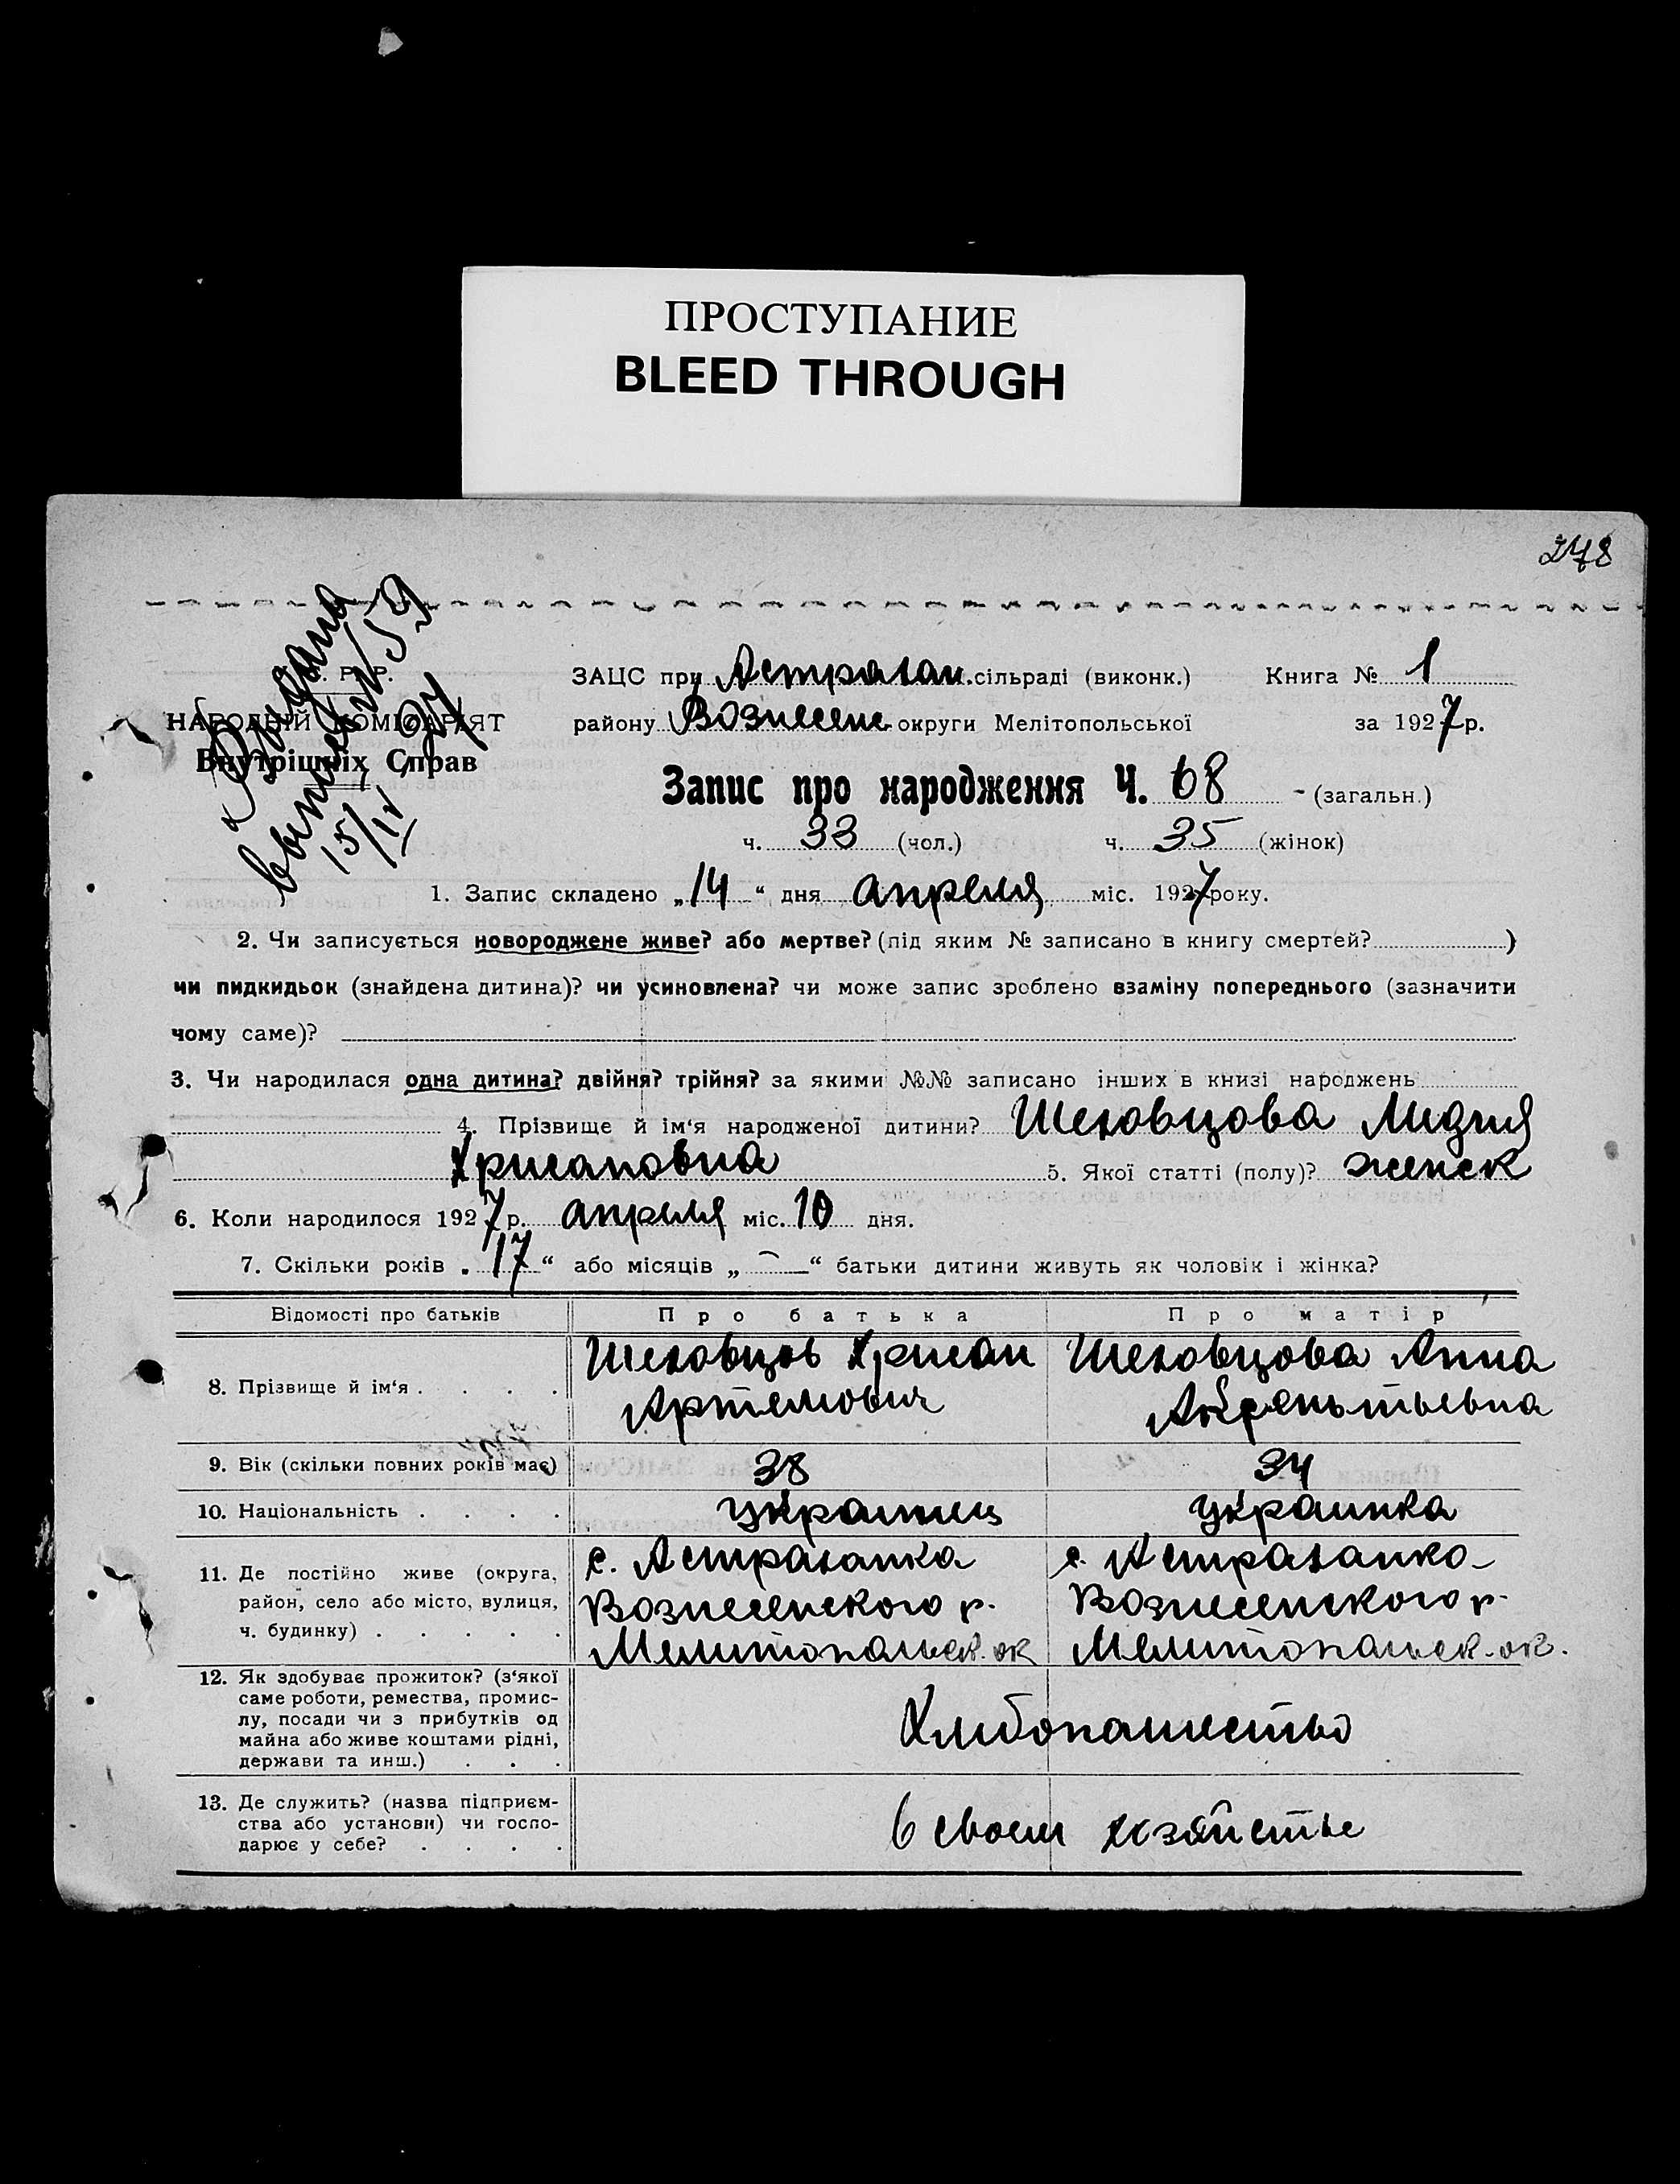 ПРОСТУПАНИЕ
BLEED THROUGH
278
Р. Р.
НАРОДНІЙ КОМІСАРІЯТ
Внутрішніх Справ
Выдана
выпись
15/IV
ЗАЦС при Астрахан. сільраді (виконк.) Книга № 1
району Вознесенс округи Мелітопольської за 1927 р.
Запис про народження Ч. 68 - (загальн.)
ч. 33 (чол.) ч. 35 (жінок)
1. Запис складено „14“ дня апреля міс. 1927 року.
2. Чи записується новороджене живе? або мертве? (під яким № записано в книгу смертей? )
чи пидкидьок (знайдена дитина)? чи усиновлена? чи може запис зроблено взаміну попереднього (зазначити
чому саме)?
3. Чи народилася одна дитина? двійня? трійня? за якими №№ записано інших в книзі народжень
4. Прізвище й ім‘я народженої дитини? Шеховцова Лидия
Хрисановна 5. Якої статті (полу)? женск
6. Коли народилося 1927 р. апреля міс. 10 дня.
7. Скільки років „17“ або місяців „—“ батьки дитини живуть як чоловік і жінка?
Відомості про батьків Про батька Про матір
8. Прізвище й ім‘я . . . . Шеховцов Хрисан Шеховцова Анна
Артемович
9. Вік (скільки повних років має) 38 34
10. Національність . . . . украинец украинка
11. Де постійно живе (округа, с. Астраханка с. Астраханка
район, село або місто, вулиця, Вознесенского р. Вознесенского р.
ч. будинку) . . . . . Мелитопольск. ок Мелитопольск. ок.
12. Як здобуває прожиток? (з‘якої
саме роботи, ремества, промис-
лу, посади чи з прибутків од Хлибопашество
майна або живе коштами рідні,
держави та инш.) . . .
13. Де служить? (назва підприєм-
ства або установи) чи госпо- в своем хозяйстве
дарює у себе? . . . .